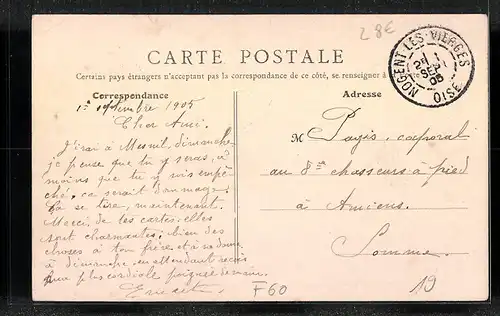 28€
NOGENT-LES-VIERGES
SEPT
05
OISE
CARTE POSTALE
Certains pays étrangers n'acceptant pas la correspondance de ce côté, se renseigner à la
Correspondance
Adresse
1er septembre 1905
Cher Ami.
J'irai à Mesnil, dimanche
je pense que tu y seras, à
moins que tu n'y sois empê
ché, ca serait dommage.
Ca se tire, maintenant.
Merci de tes cartes. elles
sont charmantes. bien des
choses à ton frère et à
à dimanche, en attendant recois
plus cordiale poignée de main.
M Payis, caporal
au 8me chasseurs à pied
à Amiens.
Somme.
F60
19